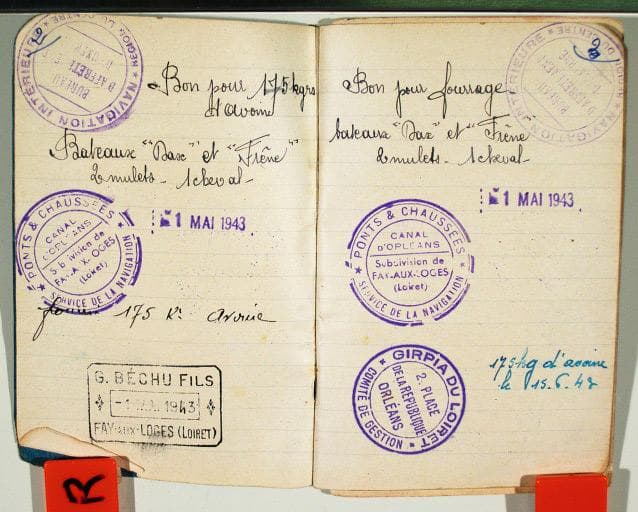 NAVIGATION INTÉRIEURE
BUREAU
D'AFFRÈT
Bon pour 175 kgrs
d'avoine
Bateaux "Dax" et "Frêne"
2 mulets - 1 cheval -
1 MAI 1943
PONTS & CHAUSSÉES
CANAL
D'ORLÉANS
Subdivision de
FAY-AUX-LOGES
(Loiret)
SERVICE DE LA NAVIGATION
175 K° avoine
G. BÉCHU FILS
1943
FAY-AUX-LOGES (LOIRET)
NAVIGATION INTÉRIEURE
BUREAU
Bon pour fourrage
bateaux "Dax" et "Frêne
2 mulets - 1 cheval -
1 MAI 1943
PONTS & CHAUSSÉES
CANAL
D'ORLÉANS
Subdivision de
FAY-AUX-LOGES
(Loiret)
SERVICE DE LA NAVIGATION
GIRPIA DU LOIRET
2, PLACE
DE LA RÉPUBLIQUE
ORLÉANS
COMITÉ DE GESTION
175 kg d'avoine
le 15.6.43
R